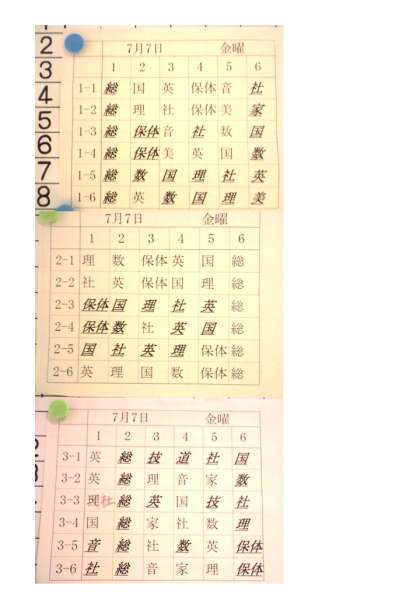 2
3
4
5
6
7
8
7月7日 金曜
1 2 3 4 5 6
1-1 総 国 英 保体 音 社
1-2 総 理 社 保体 美 家
1-3 総 保体 音 社 数 国
1-4 総 保体 美 英 国 数
1-5 総 数 国 理 社 英
1-6 総 英 数 国 理 美
7月7日 金曜
1 2 3 4 5 6
2-1 理 数 保体 英 国 総
2-2 社 英 保体 国 理 総
2-3 保体 国 理 社 英 総
2-4 保体 数 社 英 国 総
2-5 国 社 英 理 保体 総
2-6 英 理 国 数 保体 総
7月7日 金曜
1 2 3 4 5 6
3-1 英 総 技 道 社 国
3-2 英 総 理 音 家 数
3-3 社 総 英 国 技 社
3-4 国 総 家 社 数 理
3-5 音 総 社 数 英 保体
3-6 社 総 音 家 理 保体